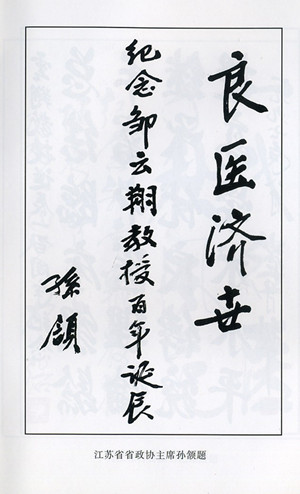 良医济世
纪念邹云翔教授百年诞辰
孙颔
江苏省省政协主席孙颔题